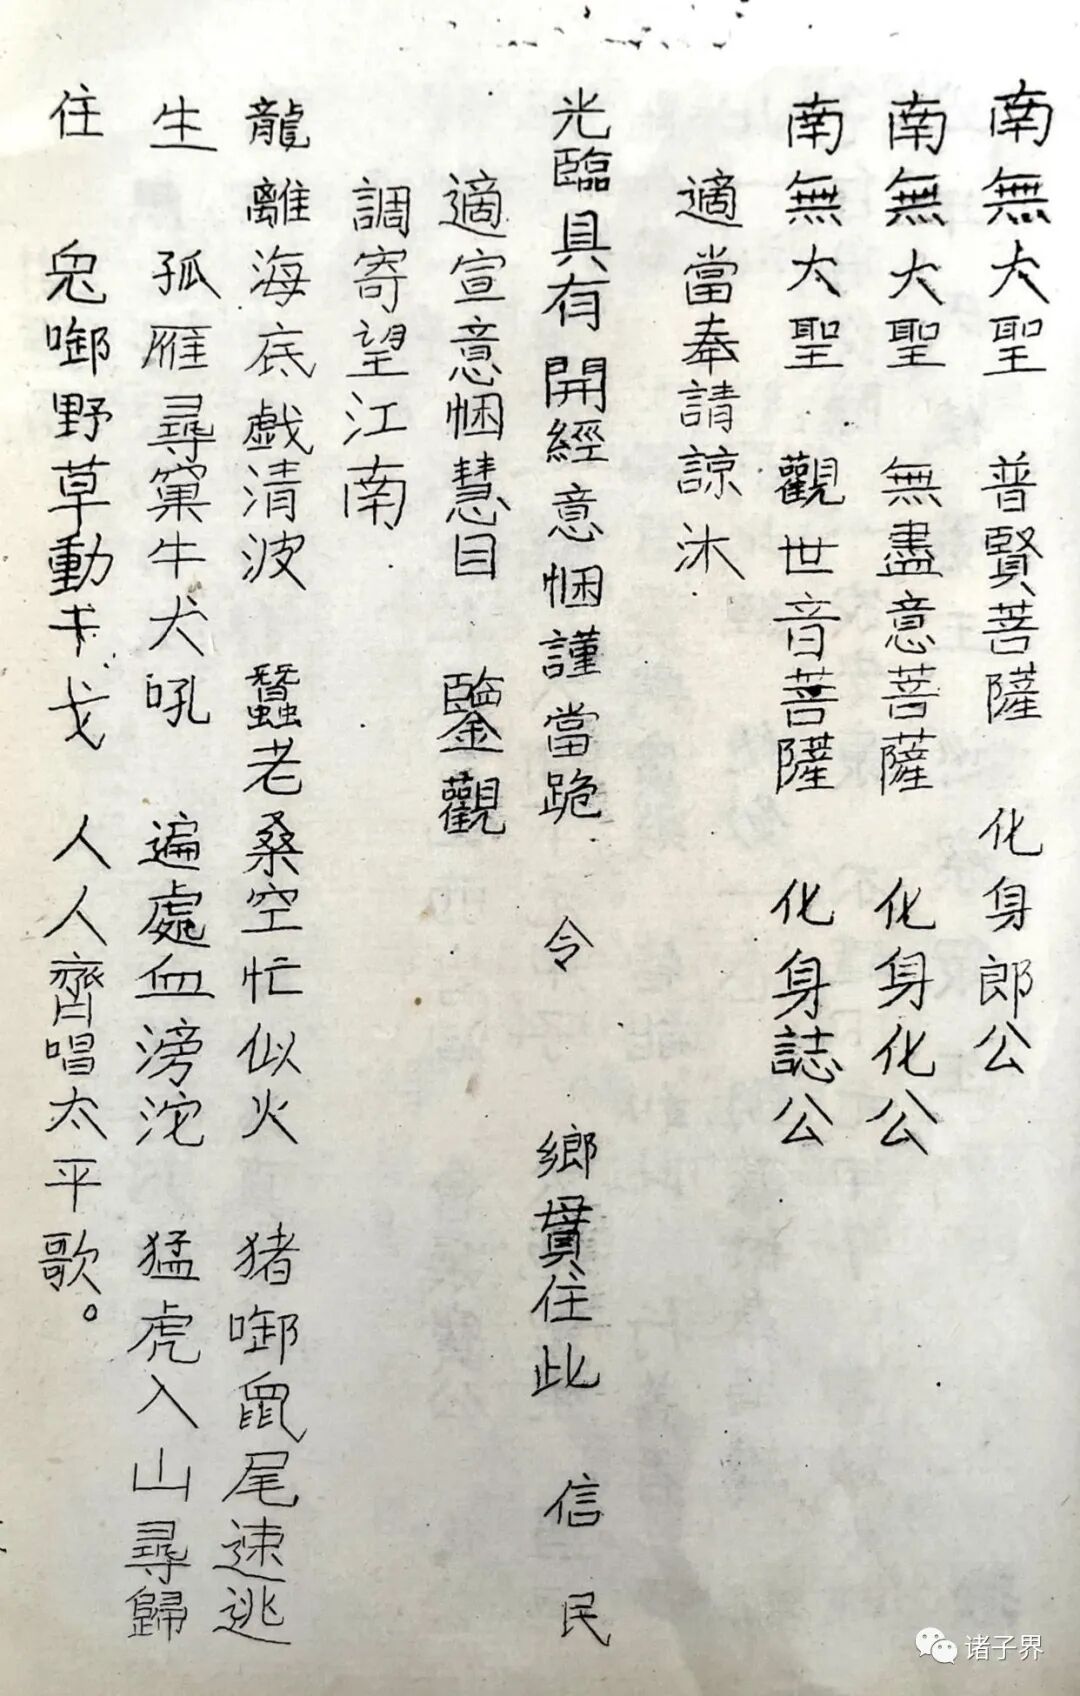 南無大聖 普賢菩薩 化身郎公
南無大聖 無盡意菩薩 化身化公
南無大聖 觀世音菩薩 化身誌公
適當奉請諒沐
光臨具有開經意悃謹當跪 令 鄉貫住此 信 民
適宣意悃慧目 鑒觀
調寄望江南
龍離海底戲清波 蠶老桑空忙似火 猪啣鼠尾速逃
生 孤雁尋窠牛犬吼 遍處血滂沱 猛虎入山尋歸
住 兔啣野草動干戈 人人齊唱太平歌。
诸子界